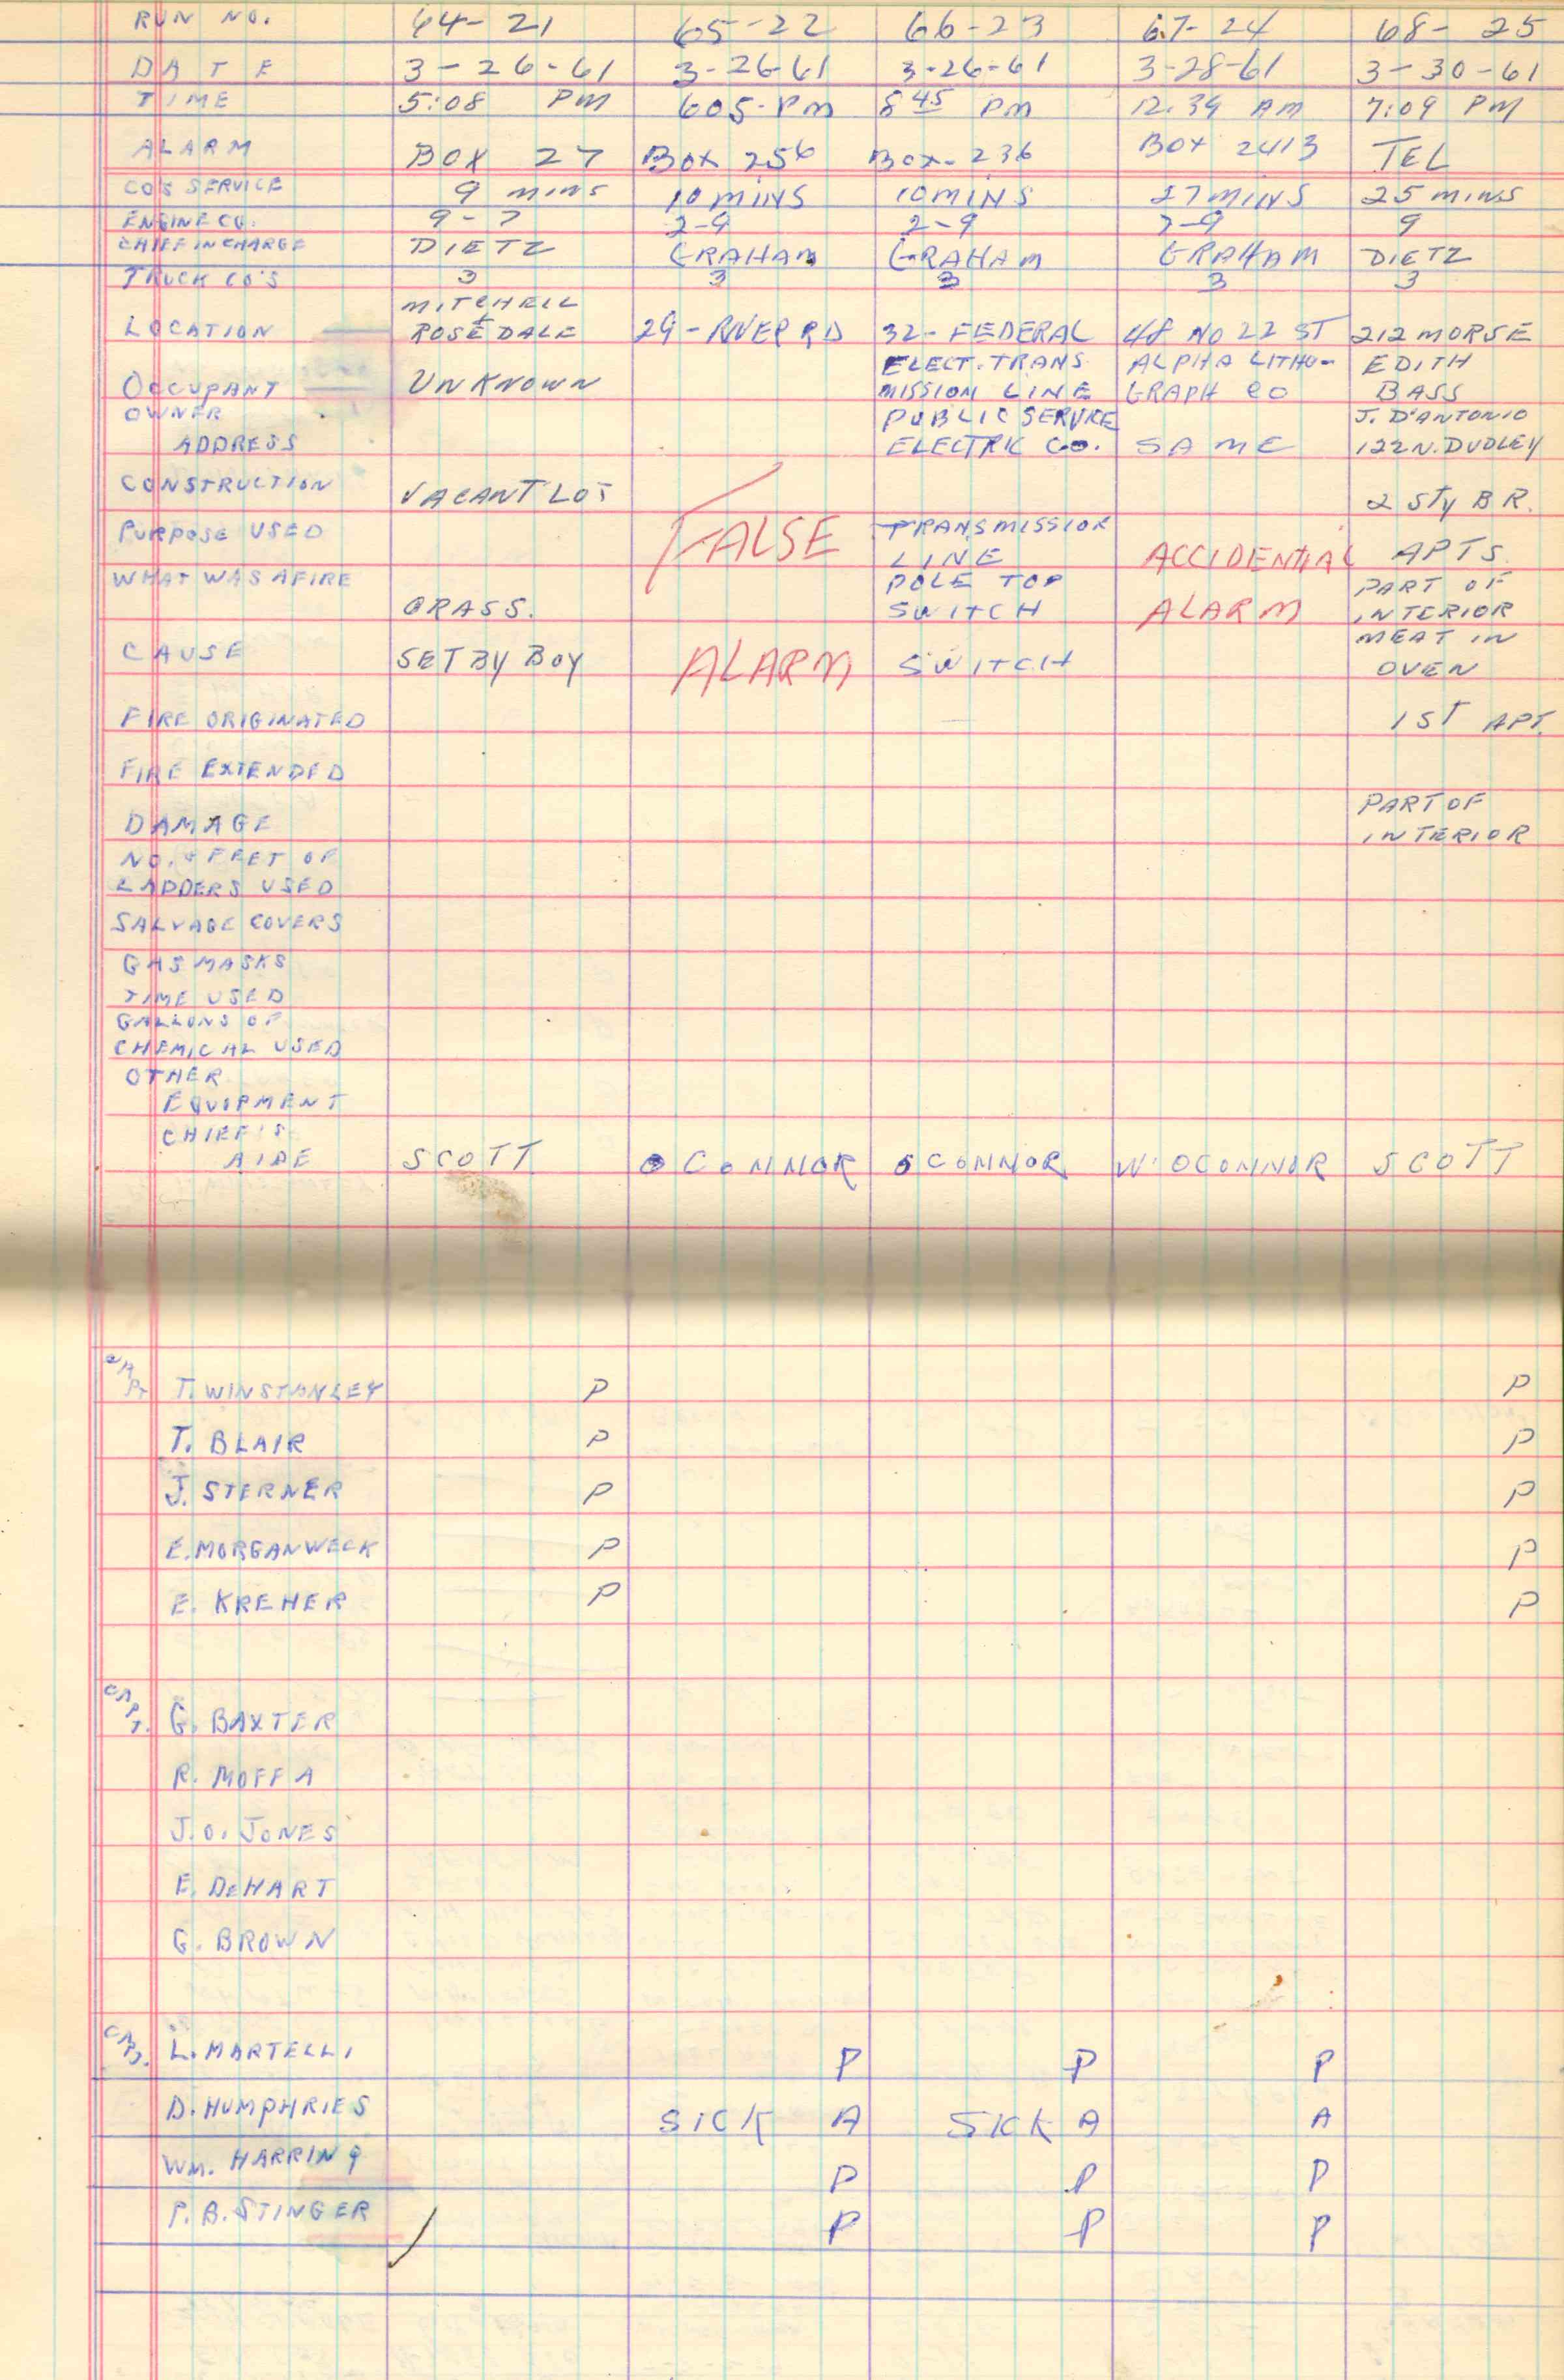 RUN NO. 64-21 65-22 66-23 67-24 68-25
DATE 3-26-61 3-26-61 3-26-61 3-28-61 3-30-61
TIME 5:08 PM 605-PM 8 45 PM 12:39 AM 7:09 PM
ALARM BOX 27 BOX 256 BOX-236 BOX 2413 TEL
CO'S SERVICE 9 MINS 10 MINS 10 MINS 27 MINS 25 MINS
ENGINE CO. 9-7 2-9 2-9 7-9 9
CHIEF IN CHARGE DIETZ GRAHAM GRAHAM GRAHAM DIETZ
TRUCK CO'S 3 3 3 3 3
MITCHELL
LOCATION + ROSEDALE 29-RIVER RD 32-FEDERAL 48 NO 22 ST 212 MORSE
ELECT. TRANS ALPHA LITHO- EDITH
OCCUPANT UNKNOWN MISSION LINE GRAPH CO BASS
OWNER PUBLIC SERVICE J. D'ANTONIO
ADDRESS ELECTRIC CO. SAME 122 N. DUDLEY
CONSTRUCTION VACANT LOT 2 STY BR.
PURPOSE USED FALSE TRANSMISSION
LINE ACCIDENTIAL APTS.
WHAT WAS AFIRE POLE TOP PART OF
GRASS. SWITCH ALARM INTERIOR
MEAT IN
CAUSE SET BY BOY ALARM SWITCH OVEN
FIRE ORIGINATED 1ST APT.
FIRE EXTENDED
PART OF
DAMAGE INTERIOR
NO. & FEET OF
LADDERS USED
SALVAGE COVERS
GAS MASKS
TIME USED
GALLONS OF
CHEMICAL USED
OTHER
EQUIPMENT
CHIEF'S
AIDE SCOTT OCONNOR OCONNOR W. OCONNOR SCOTT
CAPT T. WINSTANLEY P P
T. BLAIR P P
J. STERNER P P
E. MORGANWECK P P
E. KREHER P P
CAPT. G. BAXTER
R. MOFFA
J.O. JONES
E. DEHART
G. BROWN
CAPT. L. MARTELLI P P P
D. HUMPHRIES SICK A SICK A A
WM. HARRING P P P
P.B. STINGER P P P